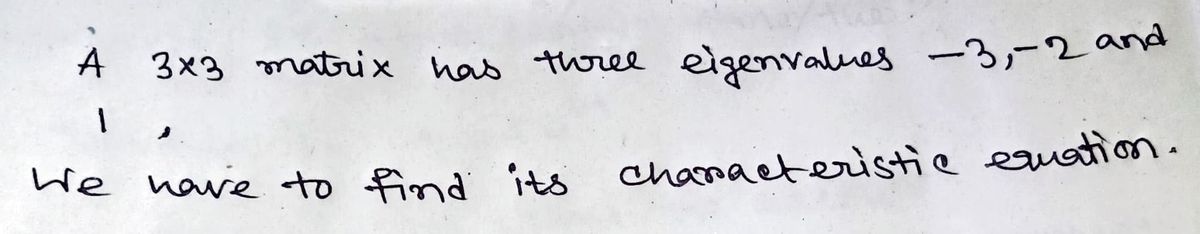 A 3×3 matrix has three eigenvalues -3,-2 and
1 ,
We have to find its characteristic equation.